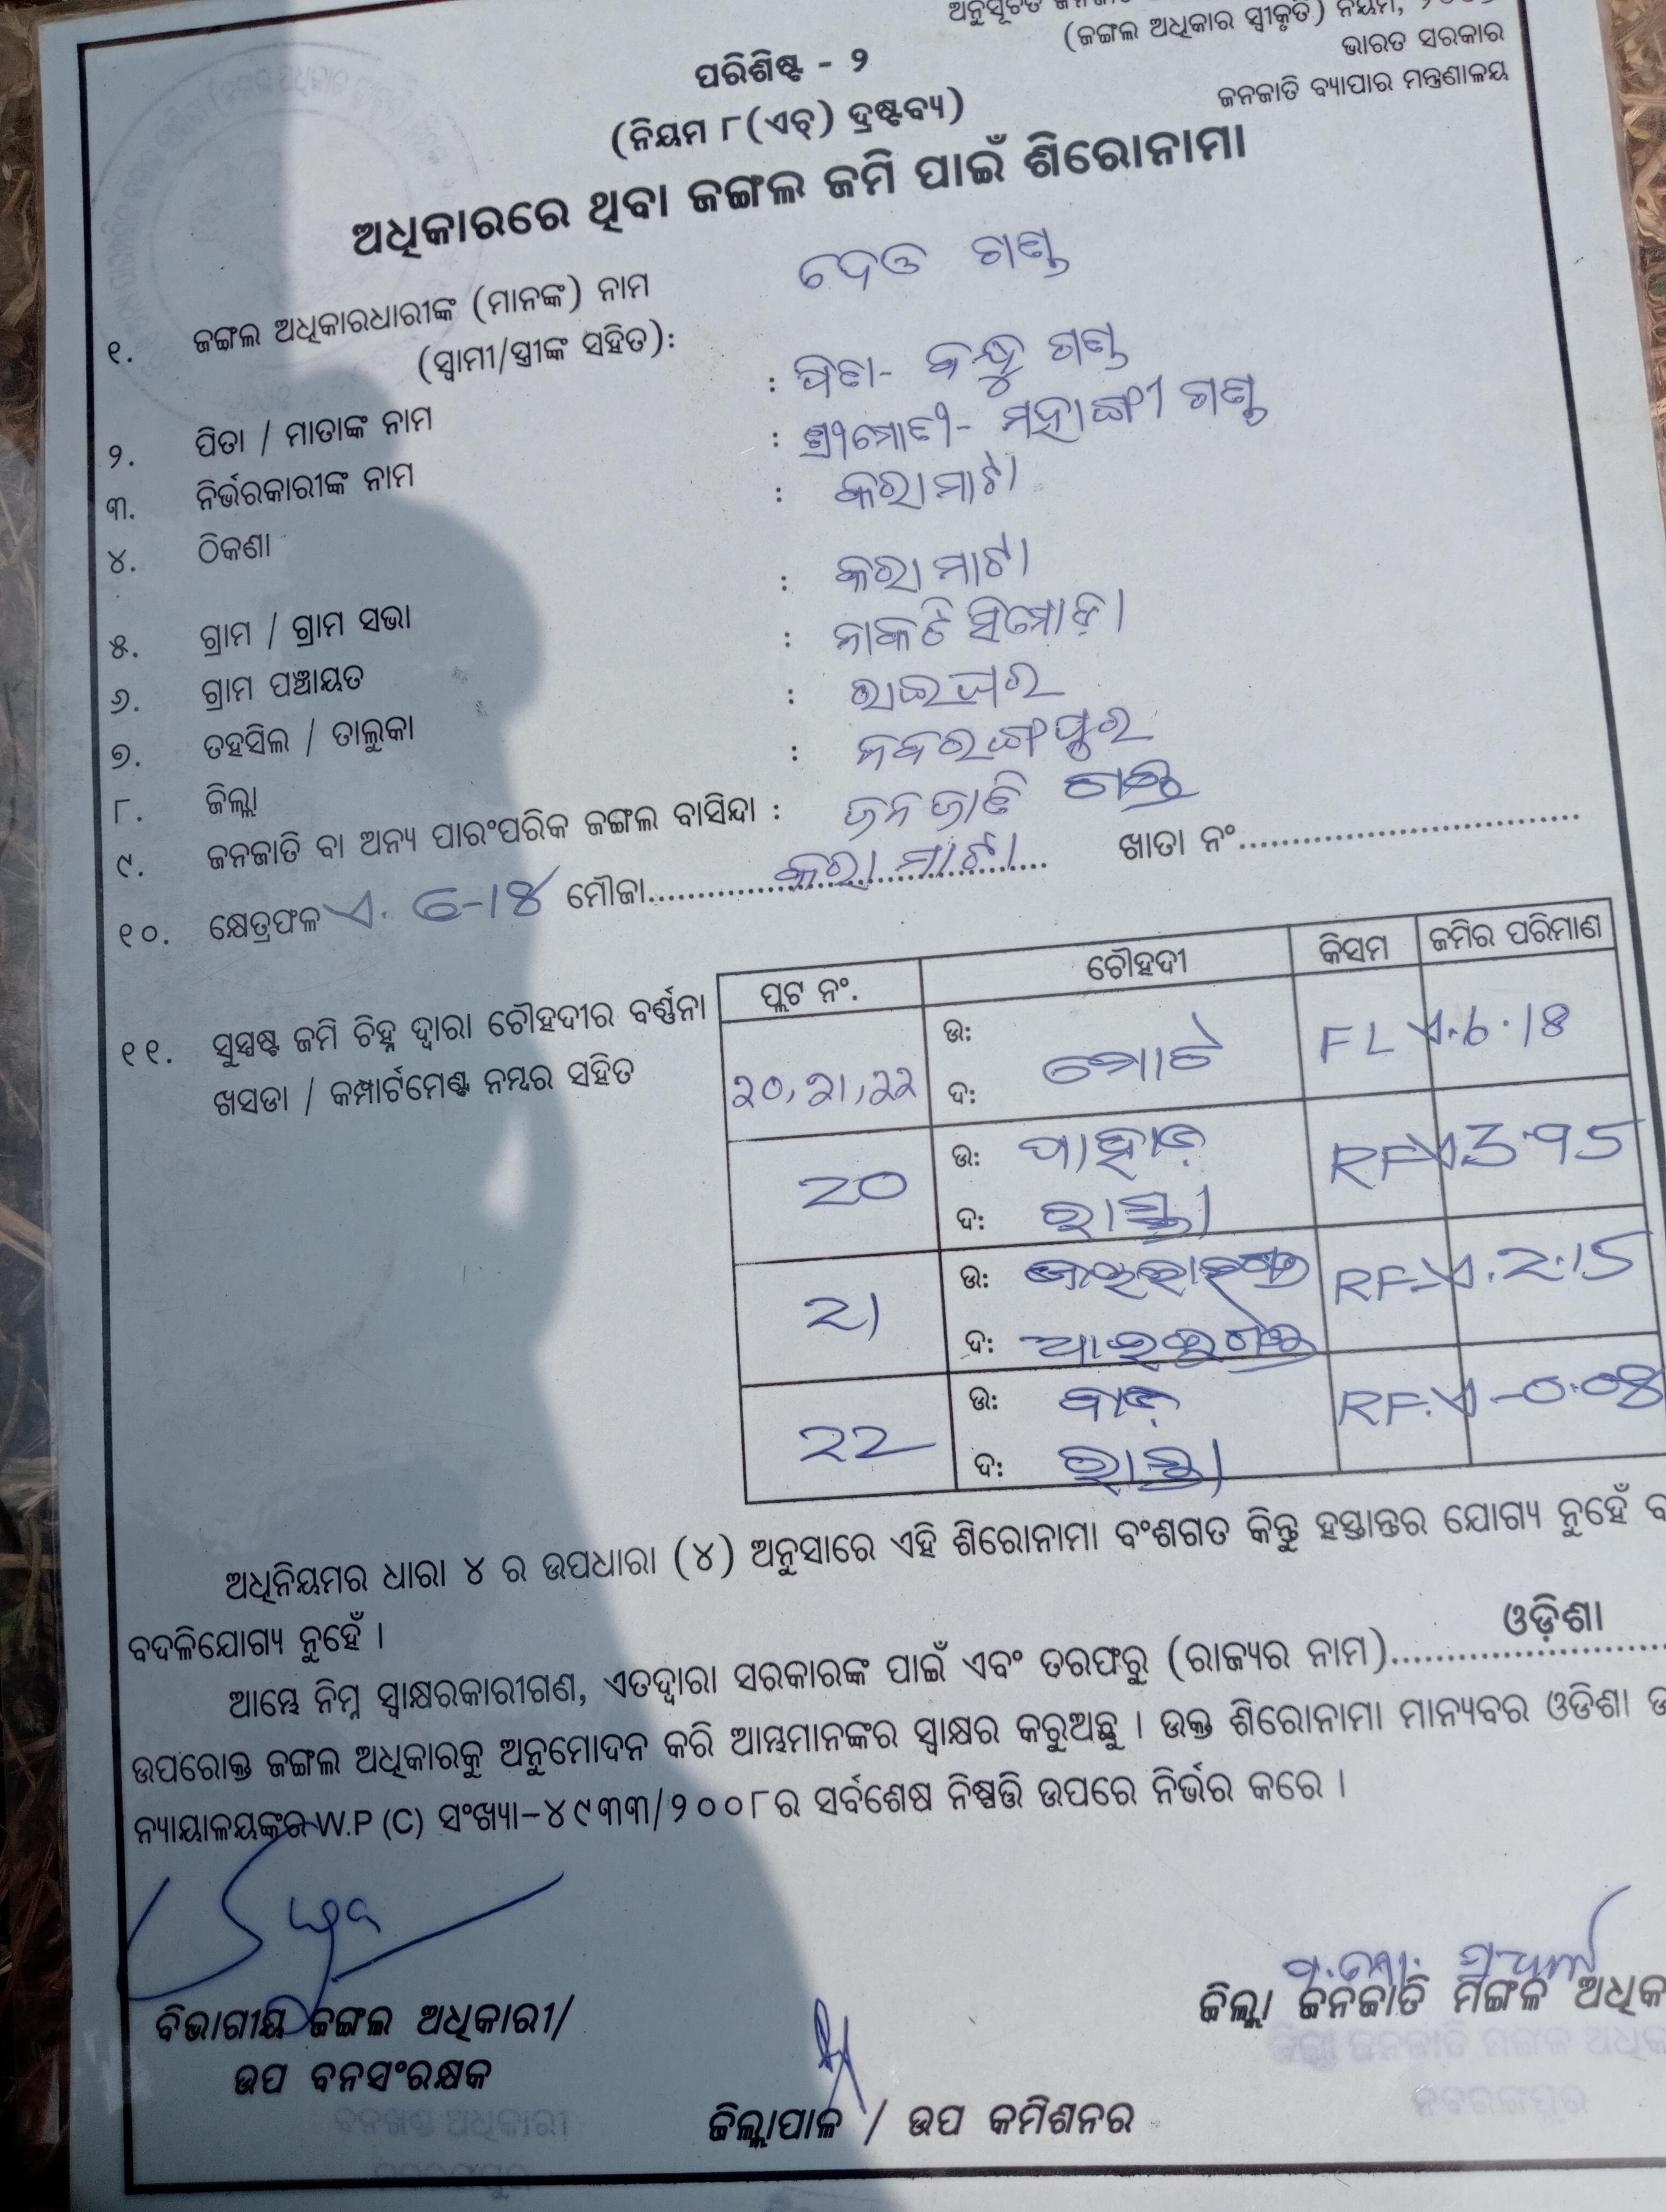 (ଜଙ୍ଗଲ ଅଧିକାର ସ୍ୱୀକୃତି) ନିୟମ,
ଭାରତ ସରକାର
ଜନଜାତି ବ୍ୟାପାର ମନ୍ତ୍ରଣାଳୟ
ପରିଶିଷ୍ଟ - ୨
(ନିୟମ ୮(ଏଚ୍) ଦ୍ରଷ୍ଟବ୍ୟ)
ଅଧିକାରରେ ଥିବା ଜଙ୍ଗଲ ଜମି ପାଇଁ ଶିରୋନାମା
୧. ଜଙ୍ଗଲ ଅଧିକାରଧାରୀଙ୍କ (ମାନଙ୍କ) ନାମ ଦେଓ ଗଣ୍ଡ
(ସ୍ୱାମୀ/ସ୍ତ୍ରୀଙ୍କ ସହିତ):
୨. ପିତା / ମାତାଙ୍କ ନାମ : ପିତା- ବନ୍ଧୁ ଗଣ୍ଡ
୩. ନିର୍ଭରକାରୀଙ୍କ ନାମ : ଗଣ୍ଡ
୪. ଠିକଣା : କରାମାଟା
୫. ଗ୍ରାମ / ଗ୍ରାମ ସଭା : କରାମାଟା
୬. ଗ୍ରାମ ପଞ୍ଚାୟତ : ନାକଟିସିମୋଡ଼ା
୭. ତହସିଲ / ତାଲୁକା : ରାଇଘର
୮. ଜିଲ୍ଲା : ନବରଙ୍ଗପୁର
୯. ଜନଜାତି ବା ଅନ୍ୟ ପାରଂପରିକ ଜଙ୍ଗଲ ବାସିନ୍ଦା : ଜନଜାତି ଗଣ୍ଡ
୧୦. କ୍ଷେତ୍ରଫଳ ଏ. 6-18 ମୌଜା.......କରାମାଟା....... ଖାତା ନଂ..............................
୧୧. ସୁସ୍ପଷ୍ଟ ଜମି ଚିହ୍ନ ଦ୍ୱାରା ଚୌହଦୀର ବର୍ଣ୍ଣନା
ଖସଡା / କମ୍ପାର୍ଟମେଣ୍ଟ ନମ୍ବର ସହିତ
ପ୍ଲଟ ନଂ. ଚୌହଦୀ କିସମ ଜମିର ପରିମାଣ
20, 21, 22 ଉ: ମୋଟେ FL ଏ.6.18
ଦ:
20 ଉ: ପାହାଡ଼ RF ଏ.3.95
ଦ: ରାସ୍ତା
21 ଉ: RF ଏ.2.15
ଦ:
22 ଉ: RF. ଏ-0.08
ଦ: ରାସ୍ତା
ଅଧିନିୟମର ଧାରା ୪ ର ଉପଧାରା (୪) ଅନୁସାରେ ଏହି ଶିରୋନାମା ବଂଶଗତ କିନ୍ତୁ ହସ୍ତାନ୍ତର ଯୋଗ୍ୟ ନୁହେଁ
ବଦଳିଯୋଗ୍ୟ ନୁହେଁ ।
ଆମ୍ଭେ ନିମ୍ନ ସ୍ୱାକ୍ଷରକାରୀଗଣ, ଏତଦ୍ୱାରା ସରକାରଙ୍କ ପାଇଁ ଏବଂ ତରଫରୁ (ରାଜ୍ୟର ନାମ).......ଓଡ଼ିଶା.......
ଉପରୋକ୍ତ ଜଙ୍ଗଲ ଅଧିକାରକୁ ଅନୁମୋଦନ କରି ଆମ୍ଭମାନଙ୍କର ସ୍ୱାକ୍ଷର କରୁଅଛୁ । ଉକ୍ତ ଶିରୋନାମା ମାନ୍ୟବର ଓଡିଶା
ନ୍ୟାୟାଳୟଙ୍କର W.P (C) ସଂଖ୍ୟା-୪୯୩୩/୨୦୦୮ର ସର୍ବଶେଷ ନିଷ୍ପତ୍ତି ଉପରେ ନିର୍ଭର କରେ ।
ବିଭାଗୀୟ ଜଙ୍ଗଲ ଅଧିକାରୀ/
ଉପ ବନସଂରକ୍ଷକ
ଜିଲ୍ଲାପାଳ / ଉପ କମିଶନର
ଜିଲ୍ଲା ଜନଜାତି ମଙ୍ଗଳ
ଜିଲ୍ଲା ଜନଜାତି ମଙ୍ଗଳ
ନବରଙ୍ଗପୁର
ବନଖଣ୍ଡ ଅଧିକାରୀ